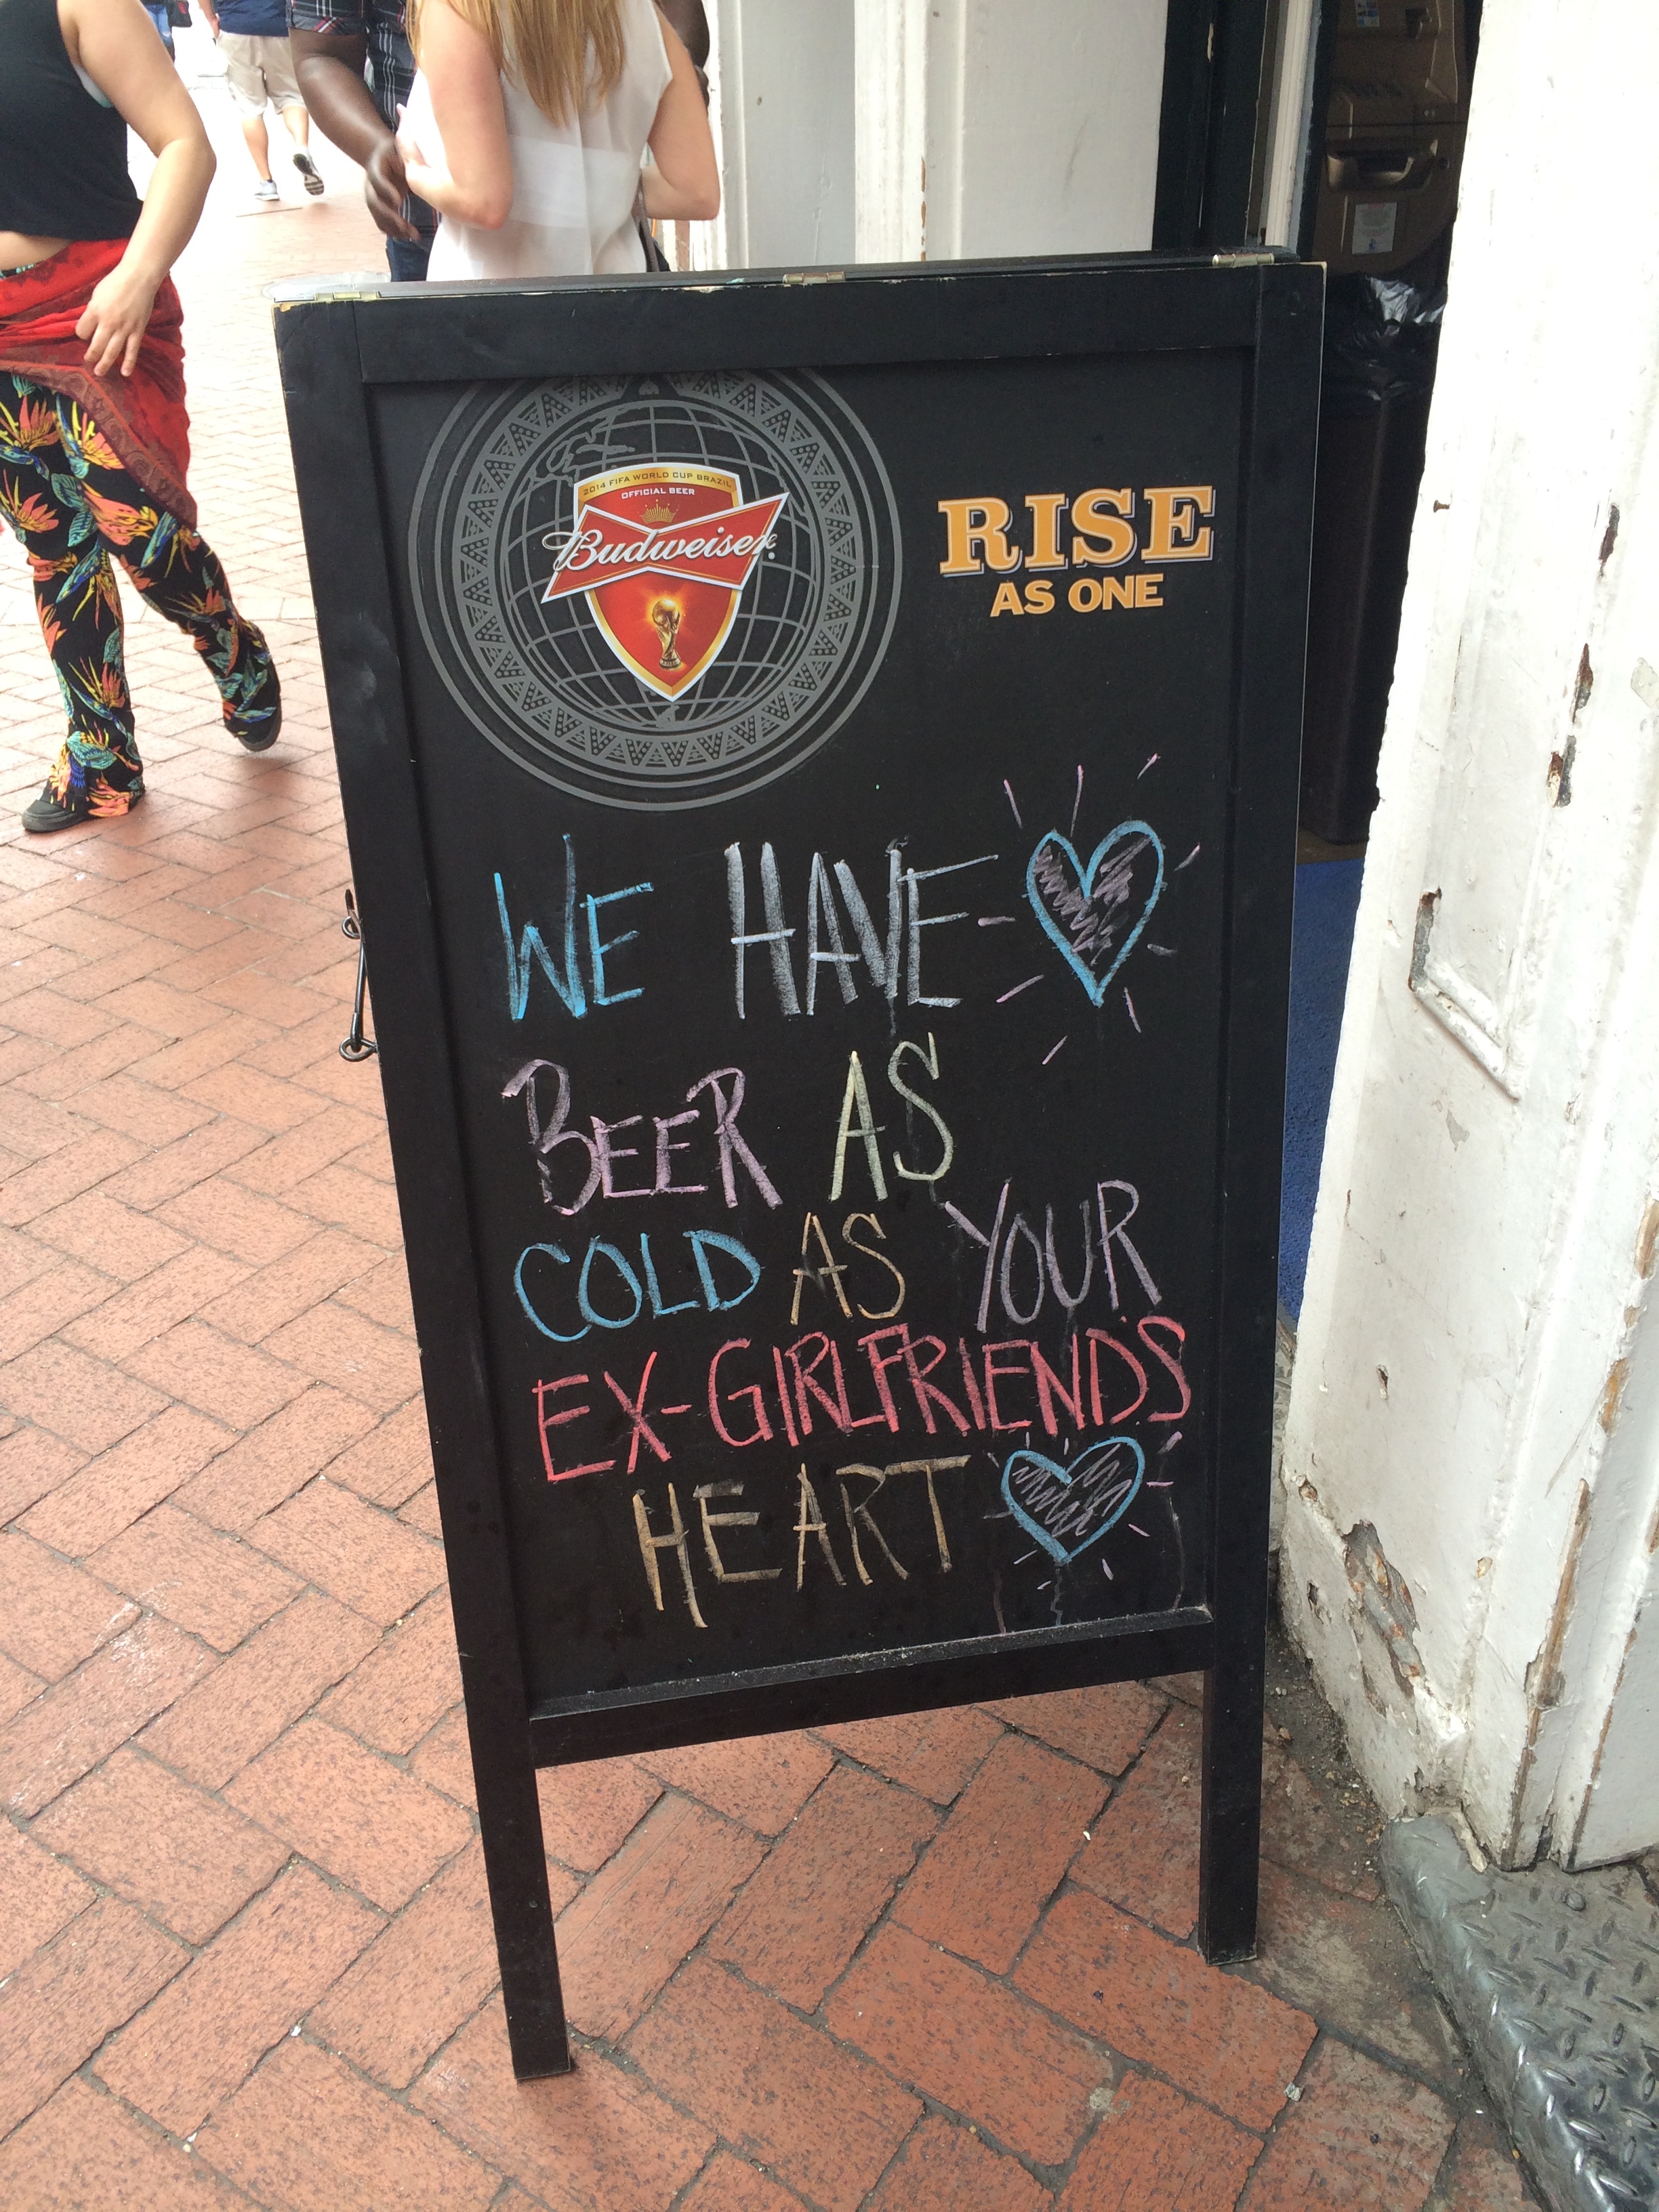 2014 FIFA WORLD CUP BRAZIL
OFFICIAL BEER
Budweiser
RISE
AS ONE
WE HAVE
BEER AS
COLD AS YOUR
EX-GIRLFRIENDS
HEART